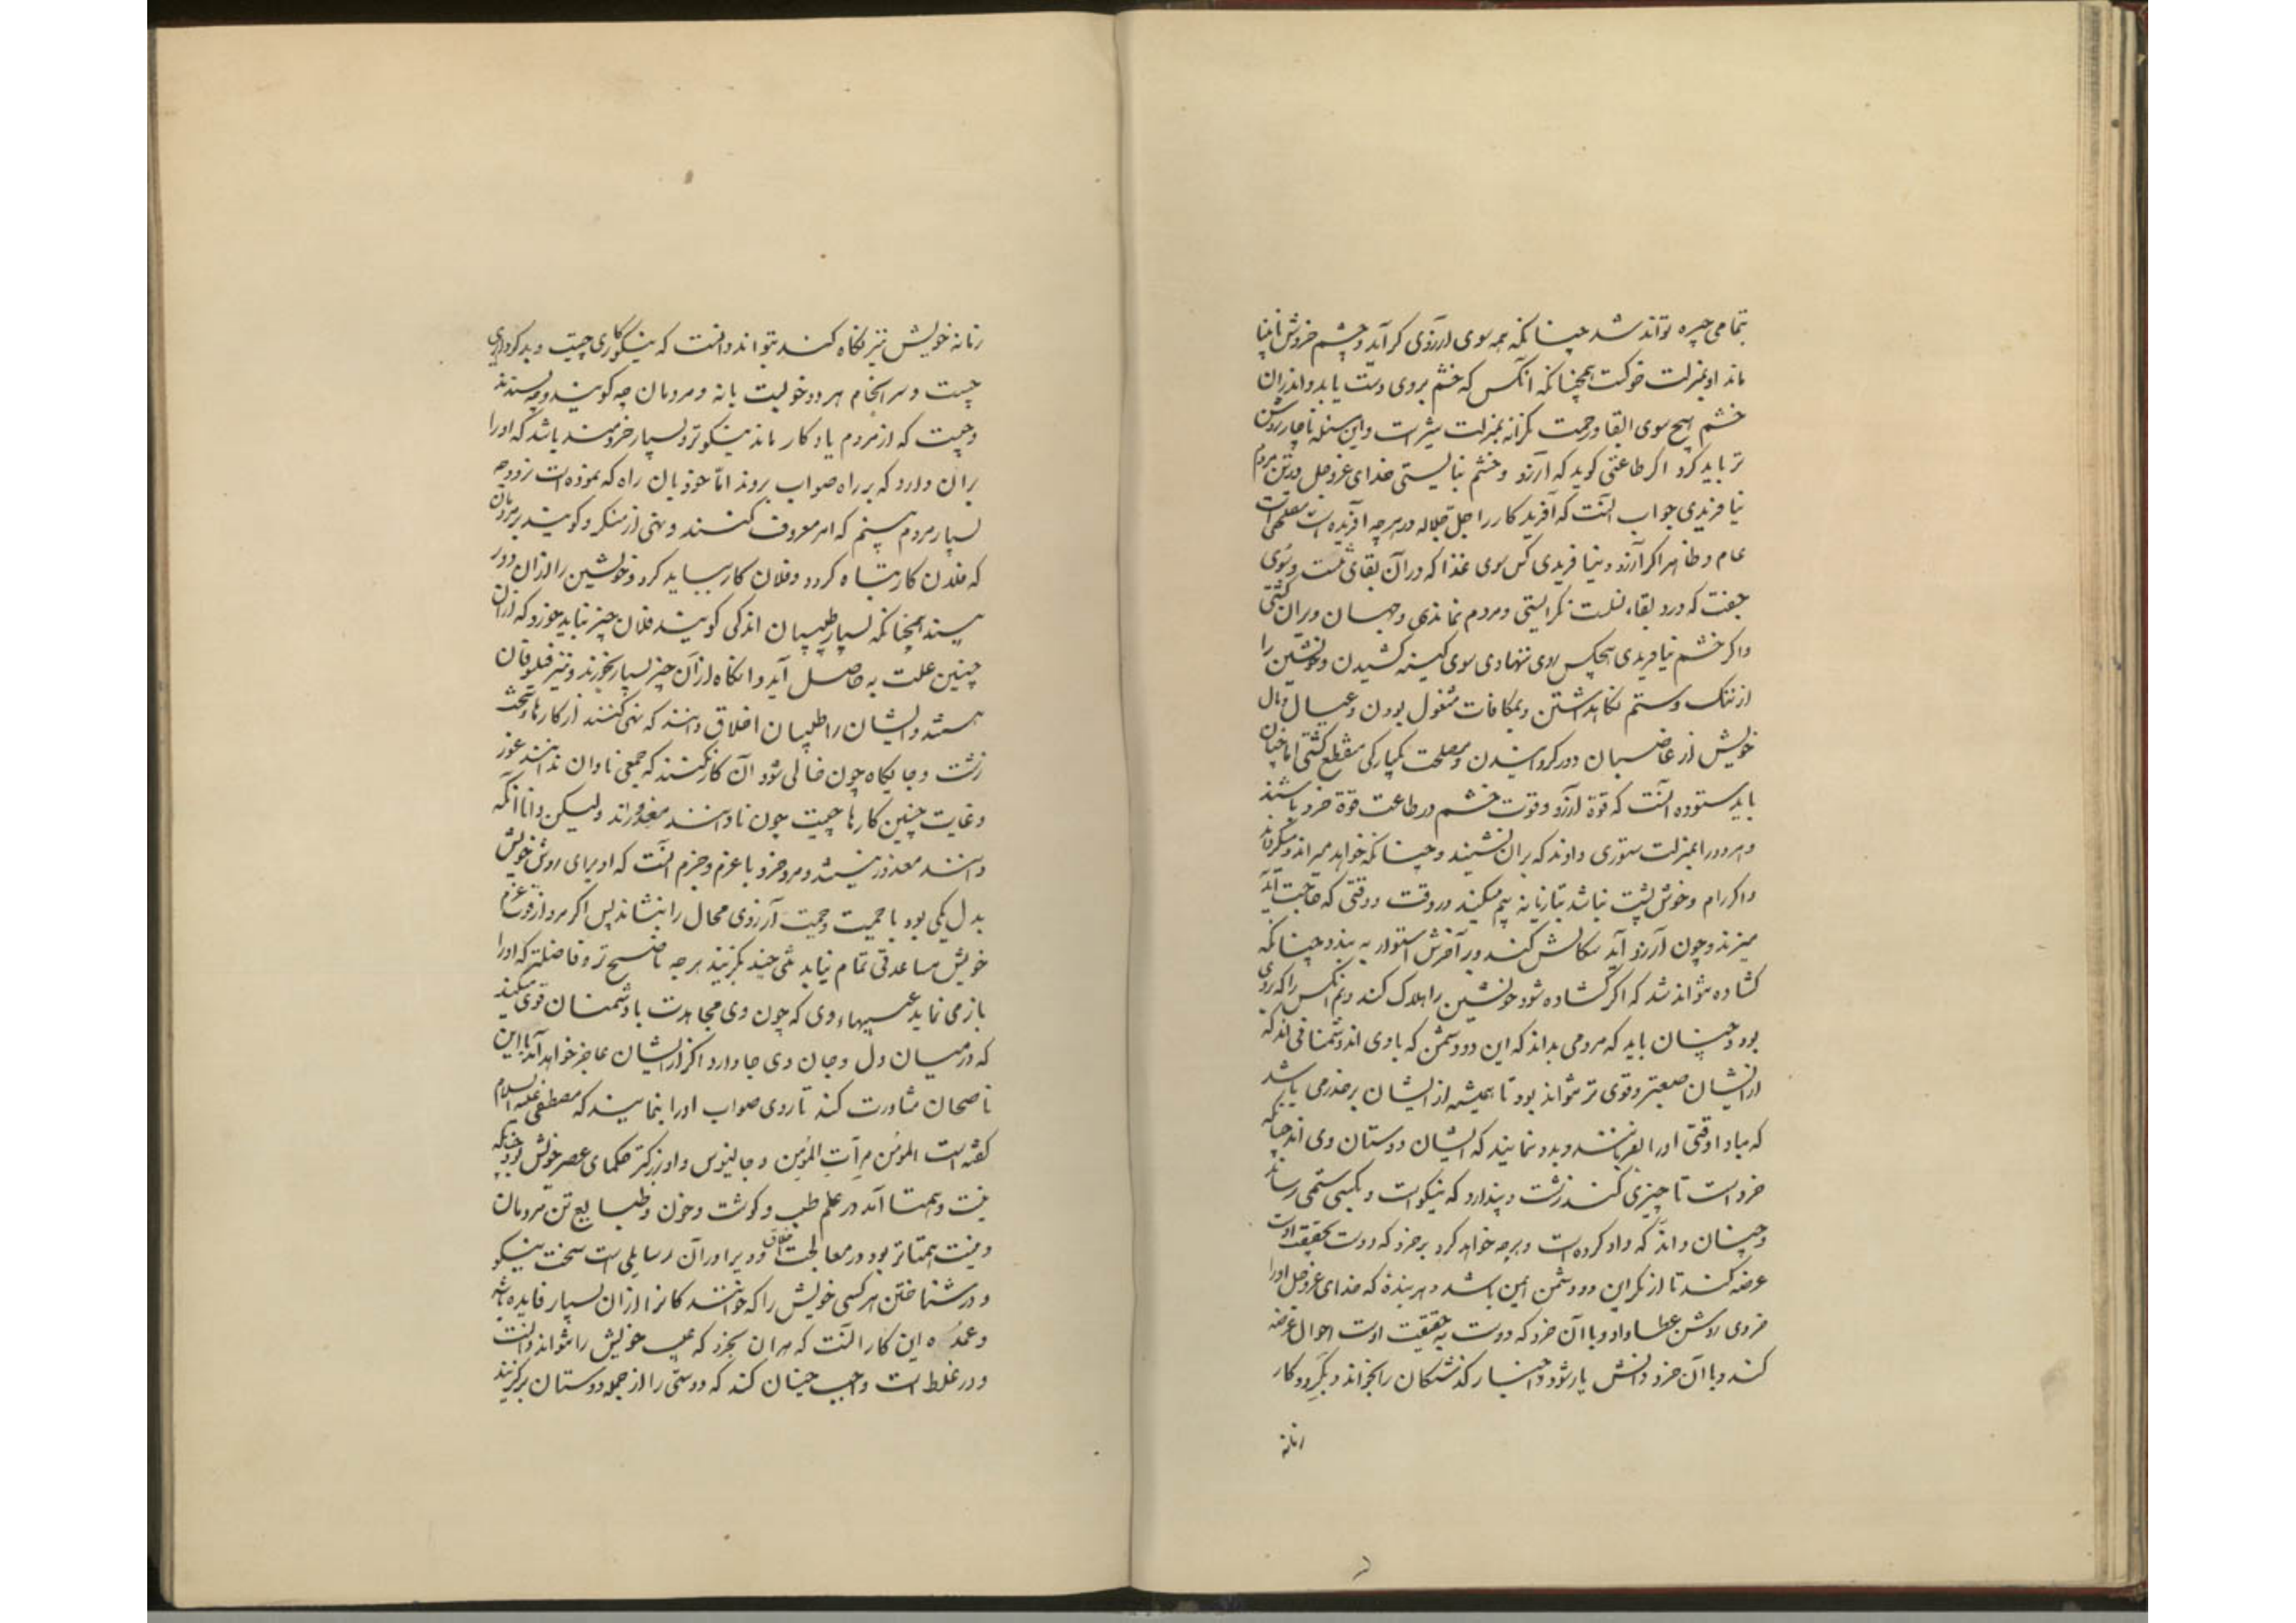 بتمامی چیره تواند شد چنانکه همه سوی آرزوی گراید و چشم خردش نابینا
ماند او بمنزلت خوکست همچنانکه آنکس که خشم بروی دست یابد و اندران
خشم هیچ سوی ابقا و رحمت نگراند بمنزلت شیر است و این مسئله ناچار روشن
تر باید کرد اگر طاعنی کوید که آرزو و خشم نبایستی خدای عزوجل در تن مردم
نیافریدی جواب آنست که آفریدکار را جل جلاله در هرچه آفریده است مصلحتی است
عام و ظاهر اگر آرزو نیافریدی کس سوی غذا که در آن بقای تنست و سوی
جفت که درو بقاء نسلست نگرایستی و مردم نماندی و جهان ویران گشتی
و اگر خشم نیافریدی هیچکس روی ننهادی سوی کینه کشیدن و خویشتن را
از ننگ و ستم نگاهداشتن و بمکافات مشغول بودن و عیال و مال
خویش از غاصبان دور گردانیدن و مصلحت یکبارکی منقطع گشتی اما چنان
باید ستوده آنست که قوة آرزو و قوت خشم در طاعت قوة خرد باشند
و هر دو را بمنزلت ستوری دانند که بران نشیند و چنانکه خواهد میراند و میگرداند
و اگر رام و خوش پشت نباشد بتازیانه بیم میکند در وقت و وقتی که حاجت آید
میزند و چون آرزو آید سکالش کند و بر آخرش استوار به بندد چنانکه
گشاده نتواند شد که اگر گشاده شود خویشتن را هلاک کند و هم آنکس را که بروی
بود و چنان باید که مردمی بداند که این دو دشمن که با وی اند دشمنانی اند که
ازیشان صعبتر و قوی تر نتواند بود تا همیشه از ایشان بر حذر می باشد
که مبادا وقتی او را بفریبند و بدو نمایند که ایشان دوستان وی اند چنانکه
خرد است تا چیزی کند زشت و پندارد که نیکو است و بکسی ستمی رساند
و چنان داند که داد کرده است و هرچه خواهد کرد بر خرد که دوست بحقیقت اوست
عرضه کند تا از مکر این دو دشمن ایمن باشد و هر بنده که خدای عزوجل او را
خردی روشن عطا داد و با آن خرد که دوست به حقیقت اوست احوال عرضه
کند و با آن خرد دانش یار شود و اخبار گذشتگان را بخواند و بگردد و کار
زمانه
زمانه خویش نیز نگاه کند بتواند دانست که نیکوکاری چیست و بدکرداری
چیست و سرانجام هر دو خوبست یا نه و مردمان چه کویند و چه پسندند
و چیست که از مردم یادکار ماند نیکوتر و بسیار خردمند باشد که او را
بر آن دارد که بر راه صواب بروند اما خود بآن راه که نموده است نرود چه
بسیار مردم بینم که امر معروف کنند و نهی از منکر و کویند بر مردمان
که فلان کار تباه کردد و فلان کار بباید کرد و خویشتن را از آن دور
بینند همچنانکه بسیار طبیبان اندکی کویند فلان چیز نباید خورد که از آن
چنین علت به حاصل آید و انکاه از آن چیز بسیار بخورند و نیز فیلسوفان
هستند و ایشان را طبیبان اخلاق دانند که نهی کنند از کارهای سخت
زشت و جایکاه چون خالی شود آن کار بکنند که جمعی نادان ندانند غور
و غایت چنین کارها چیست چون نادانند معذورند و لیکن دانا آنکه
دانند معذور نیستند و مرد خرد با عزم و حزم آنست که او برای روشن خویش
بدل یکی بود با جمیت و حمیت آرزوی محال را بنشاند پس اگر مرد از قوت عزم
خویش مساعدتی تمام نیابد تنی چند بگزیند هرچه ناصح تر و فاضلتر که او را
باز می نماید عیبهاء وی که چون وی مجاهدت با دشمنان قوی میکند
که در میان دل و جان وی جا دارد اگر از ایشان عاجز خواهد آمد با این
ناصحان مشاورت کند تا روی صواب او را بنمایند که مصطفی علیه السلام
گفته است المؤمن مرآت المؤمن و جالینوس و او بزرکتر حکمای عصر خویش بود چنانکه
نیست و همتا آمد در علم طب و کوشت و خون و طبایع تن مردمان
و نیست همتاتر بود در معالجت اخلاق و ویرا در آن رسایلی ست سخت نیکو
و در شناختن هر کسی خویش را که خوانندگانرا از آن بسیار فایده باشد
و عمده این کار آنست که هر آن بخرد که عیب خویش را نتواند دانست
و در غلط است واجب چنان کند که دوستی را از جمله دوستان برگزیند